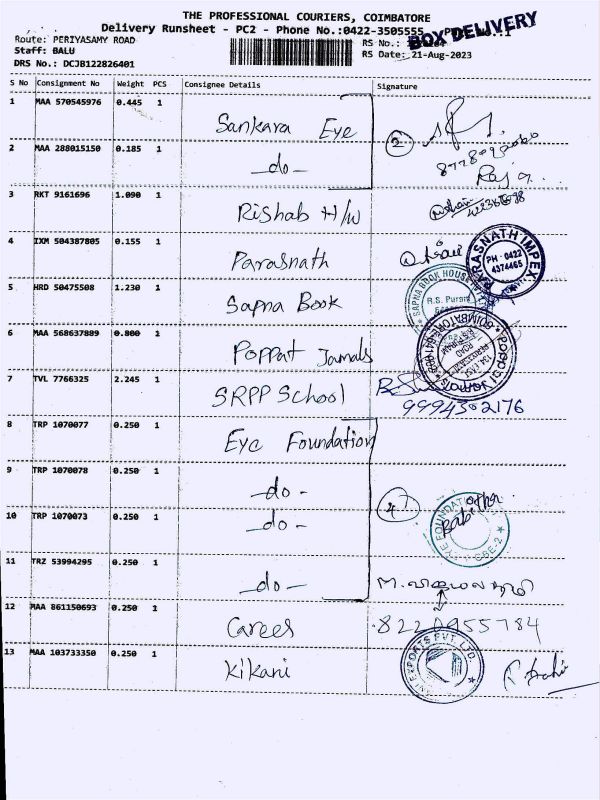 THE PROFESSIONAL COURIERS, COIMBATORE
Delivery Runsheet - PC2 - Phone No.:0422-3505555
BOX DELIVERY
Route: PERIYASAMY ROAD
RS No.:
Staff: BALU
RS Date: 21-Aug-2023
DRS No.: DCJB122826401
S No Consignment No Weight PCS Consignee Details Signature
1 MAA 570545976 0.445 1 Sankara Eye
2 MAA 288015150 0.185 1 -do-
2
Raj
3 RKT 9161696 1.090 1 Rishab H/W
4 IXM 504387805 0.155 1 Parasnath
PARASNATH IMPEX
PH - 0422
4374465
5 HRD 50475508 1.230 1 Sapna Book
SAPNA BOOK HOUSE
R.S. Puram
6 MAA 568637889 0.800 1 Poppat Jamals
Poppat Jamals
7 TVL 7766325 2.245 1 SRPP School
9994302176
8 TRP 1070077 0.250 1 Eye Foundation
9 TRP 1070078 0.250 1 -do-
4
EYE FOUNDATION
CBE-2
Babitha
10 TRP 1070073 0.250 1 -do-
11 TRZ 53994295 0.250 1 -do-
12 MAA 861150693 0.250 1 Carees
13 MAA 103733350 0.250 1 Kikani
EXPORTS PVT. LTD.